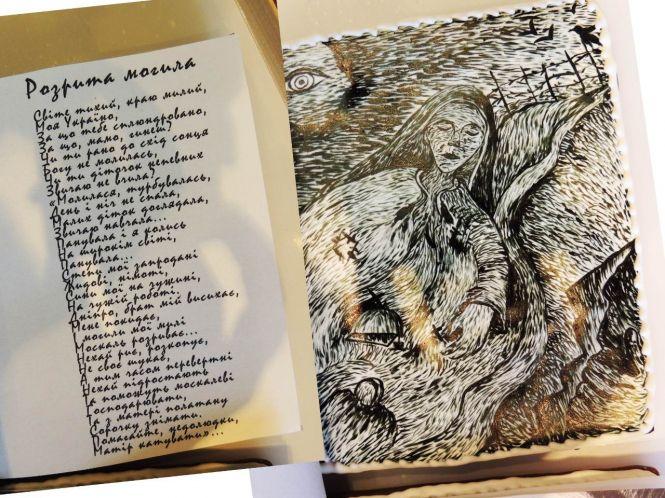 Розрита могила
Світе тихий, краю милий,
Моя Україно,
За що тебе сплюндровано,
За що, мамо, гинеш?
Чи ти рано до схід сонця
Богу не молилась,
Чи ти діточок непевних
Звичаю не вчила?
«Молилася, турбувалась,
День і ніч не спала,
Малих діток доглядала,
Звичаю навчала...
Панувала і я колись
На широкім світі,
Панувала...
Степи мої запродані
Жидові, німоті,
Сини мої на чужині,
На чужій роботі.
Дніпро, брат мій висихає,
Мене покидає,
І могили мої милі
Москаль розриває...
Нехай риє, розкопує,
Не своє шукає,
А тим часом перевертні
Нехай підростають
Та поможуть москалеві
Господарювати,
Та з матері полатану
Сорочку знімати.
Помагайте, недолюдки,
Матір катувати»...